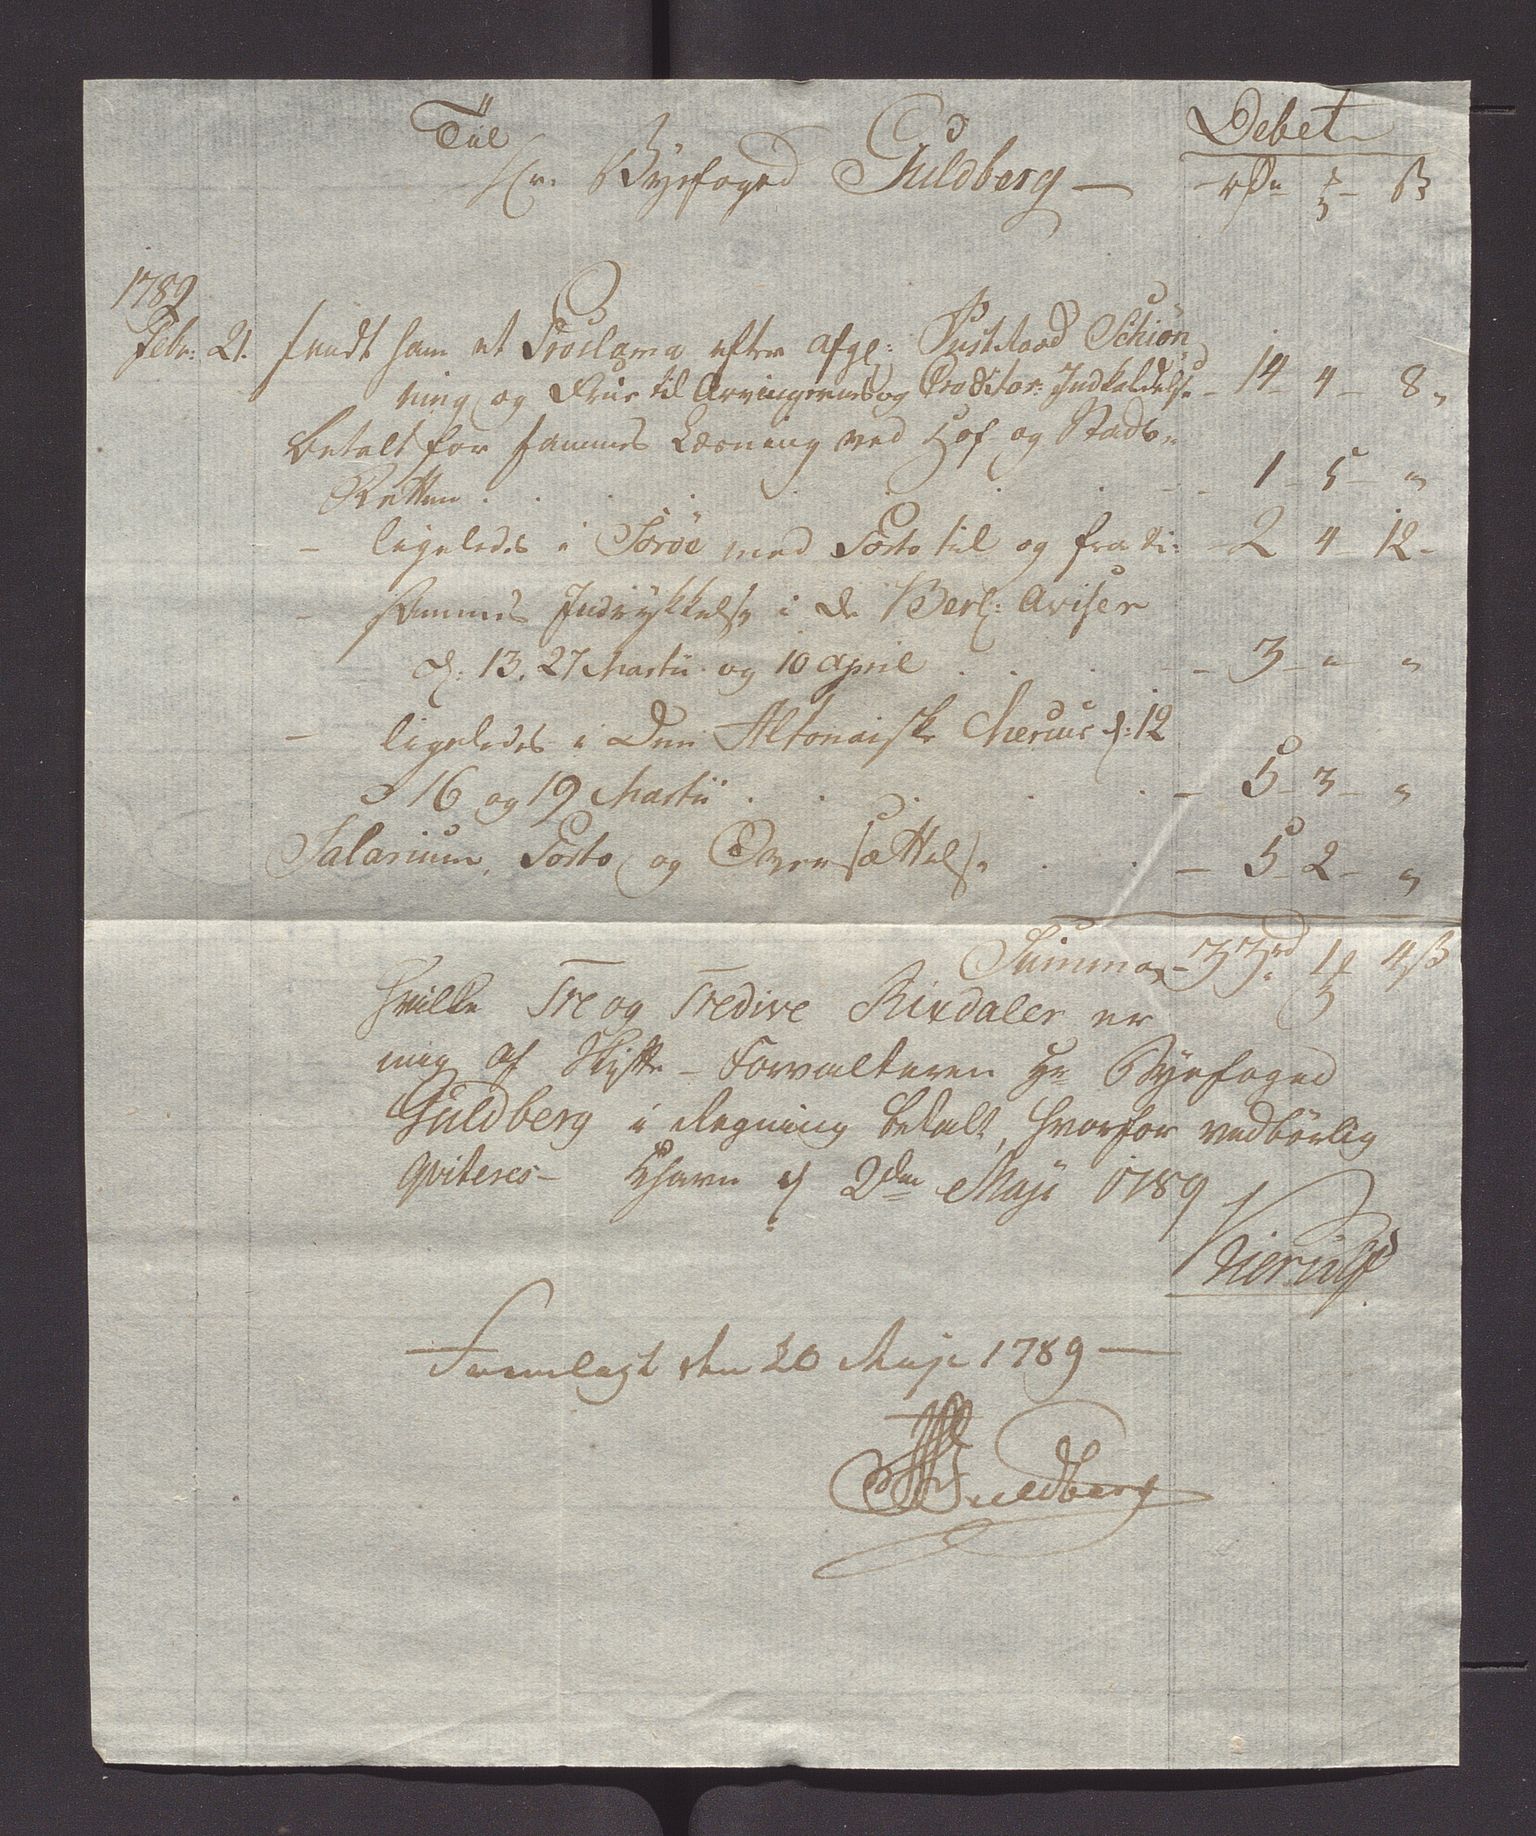 Til
Hr. Byefoged Guldberg —
Debet
rdr ß
1789
Febr: 21. sendt ham et Proclama efter afg: Justitzraad Schiön
ning og Frue til Arvingernes og Creditor: Indkaldelse - 14 - 4 - 8 "
betalt for sammes Læsning ved Hof- og Stads-
Retten . . . . . - 1 - 5 - "
— ligeledes i Soröe med Porto til og fra - 2 4 - 12 -
— sammes Indrykkelse i de Berl: Aviser
d: 13, 27 Martii og 10 April . . . - 3 - " "
— ligeledes i Den Altonaiske Mercur d: 12
16 og 19 Martii . . . . . - 5 - 3 - "
Salarium, Porto og Oversættelse . . - 5 - 2 - "
Summa - 33 rd 1 4 ß
hvilke Tre og Tredive Rixdaler er
mig af Skifte-Forvalteren Hr Byefoged
Guldberg i Regning betalt, hvorfor vedbörlig
qviteres — Khavn d 2den Maji 1789
Kierulf
Fremlagt den 20 Maji 1789 —
Guldberg